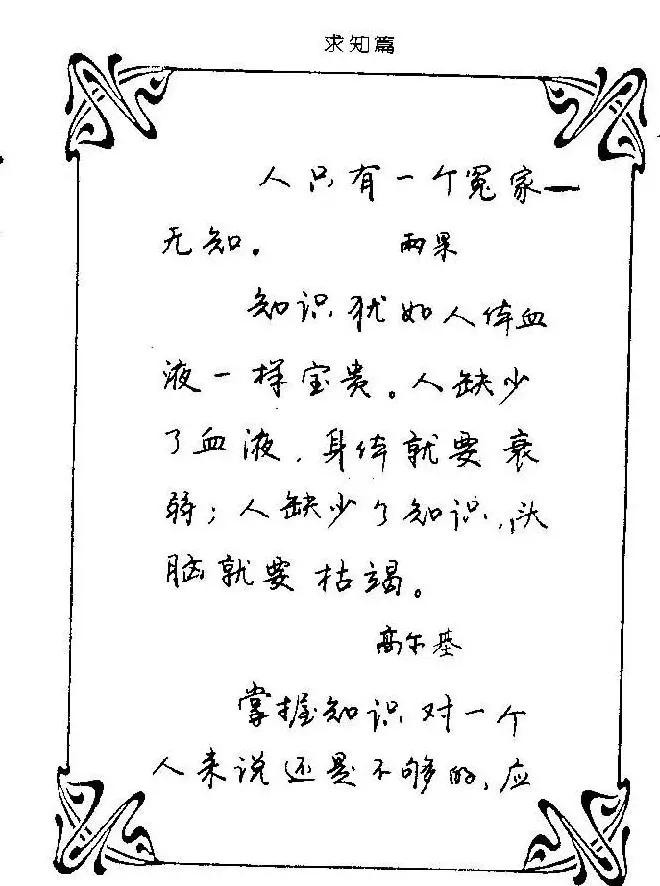 求知篇
人只有一个冤家—
无知。 雨果
知识犹如人体血
液一样宝贵。人缺少
了血液，身体就要衰
弱；人缺少了知识，头
脑就要枯竭。
高尔基
掌握知识对一个
人来说还是不够的，应